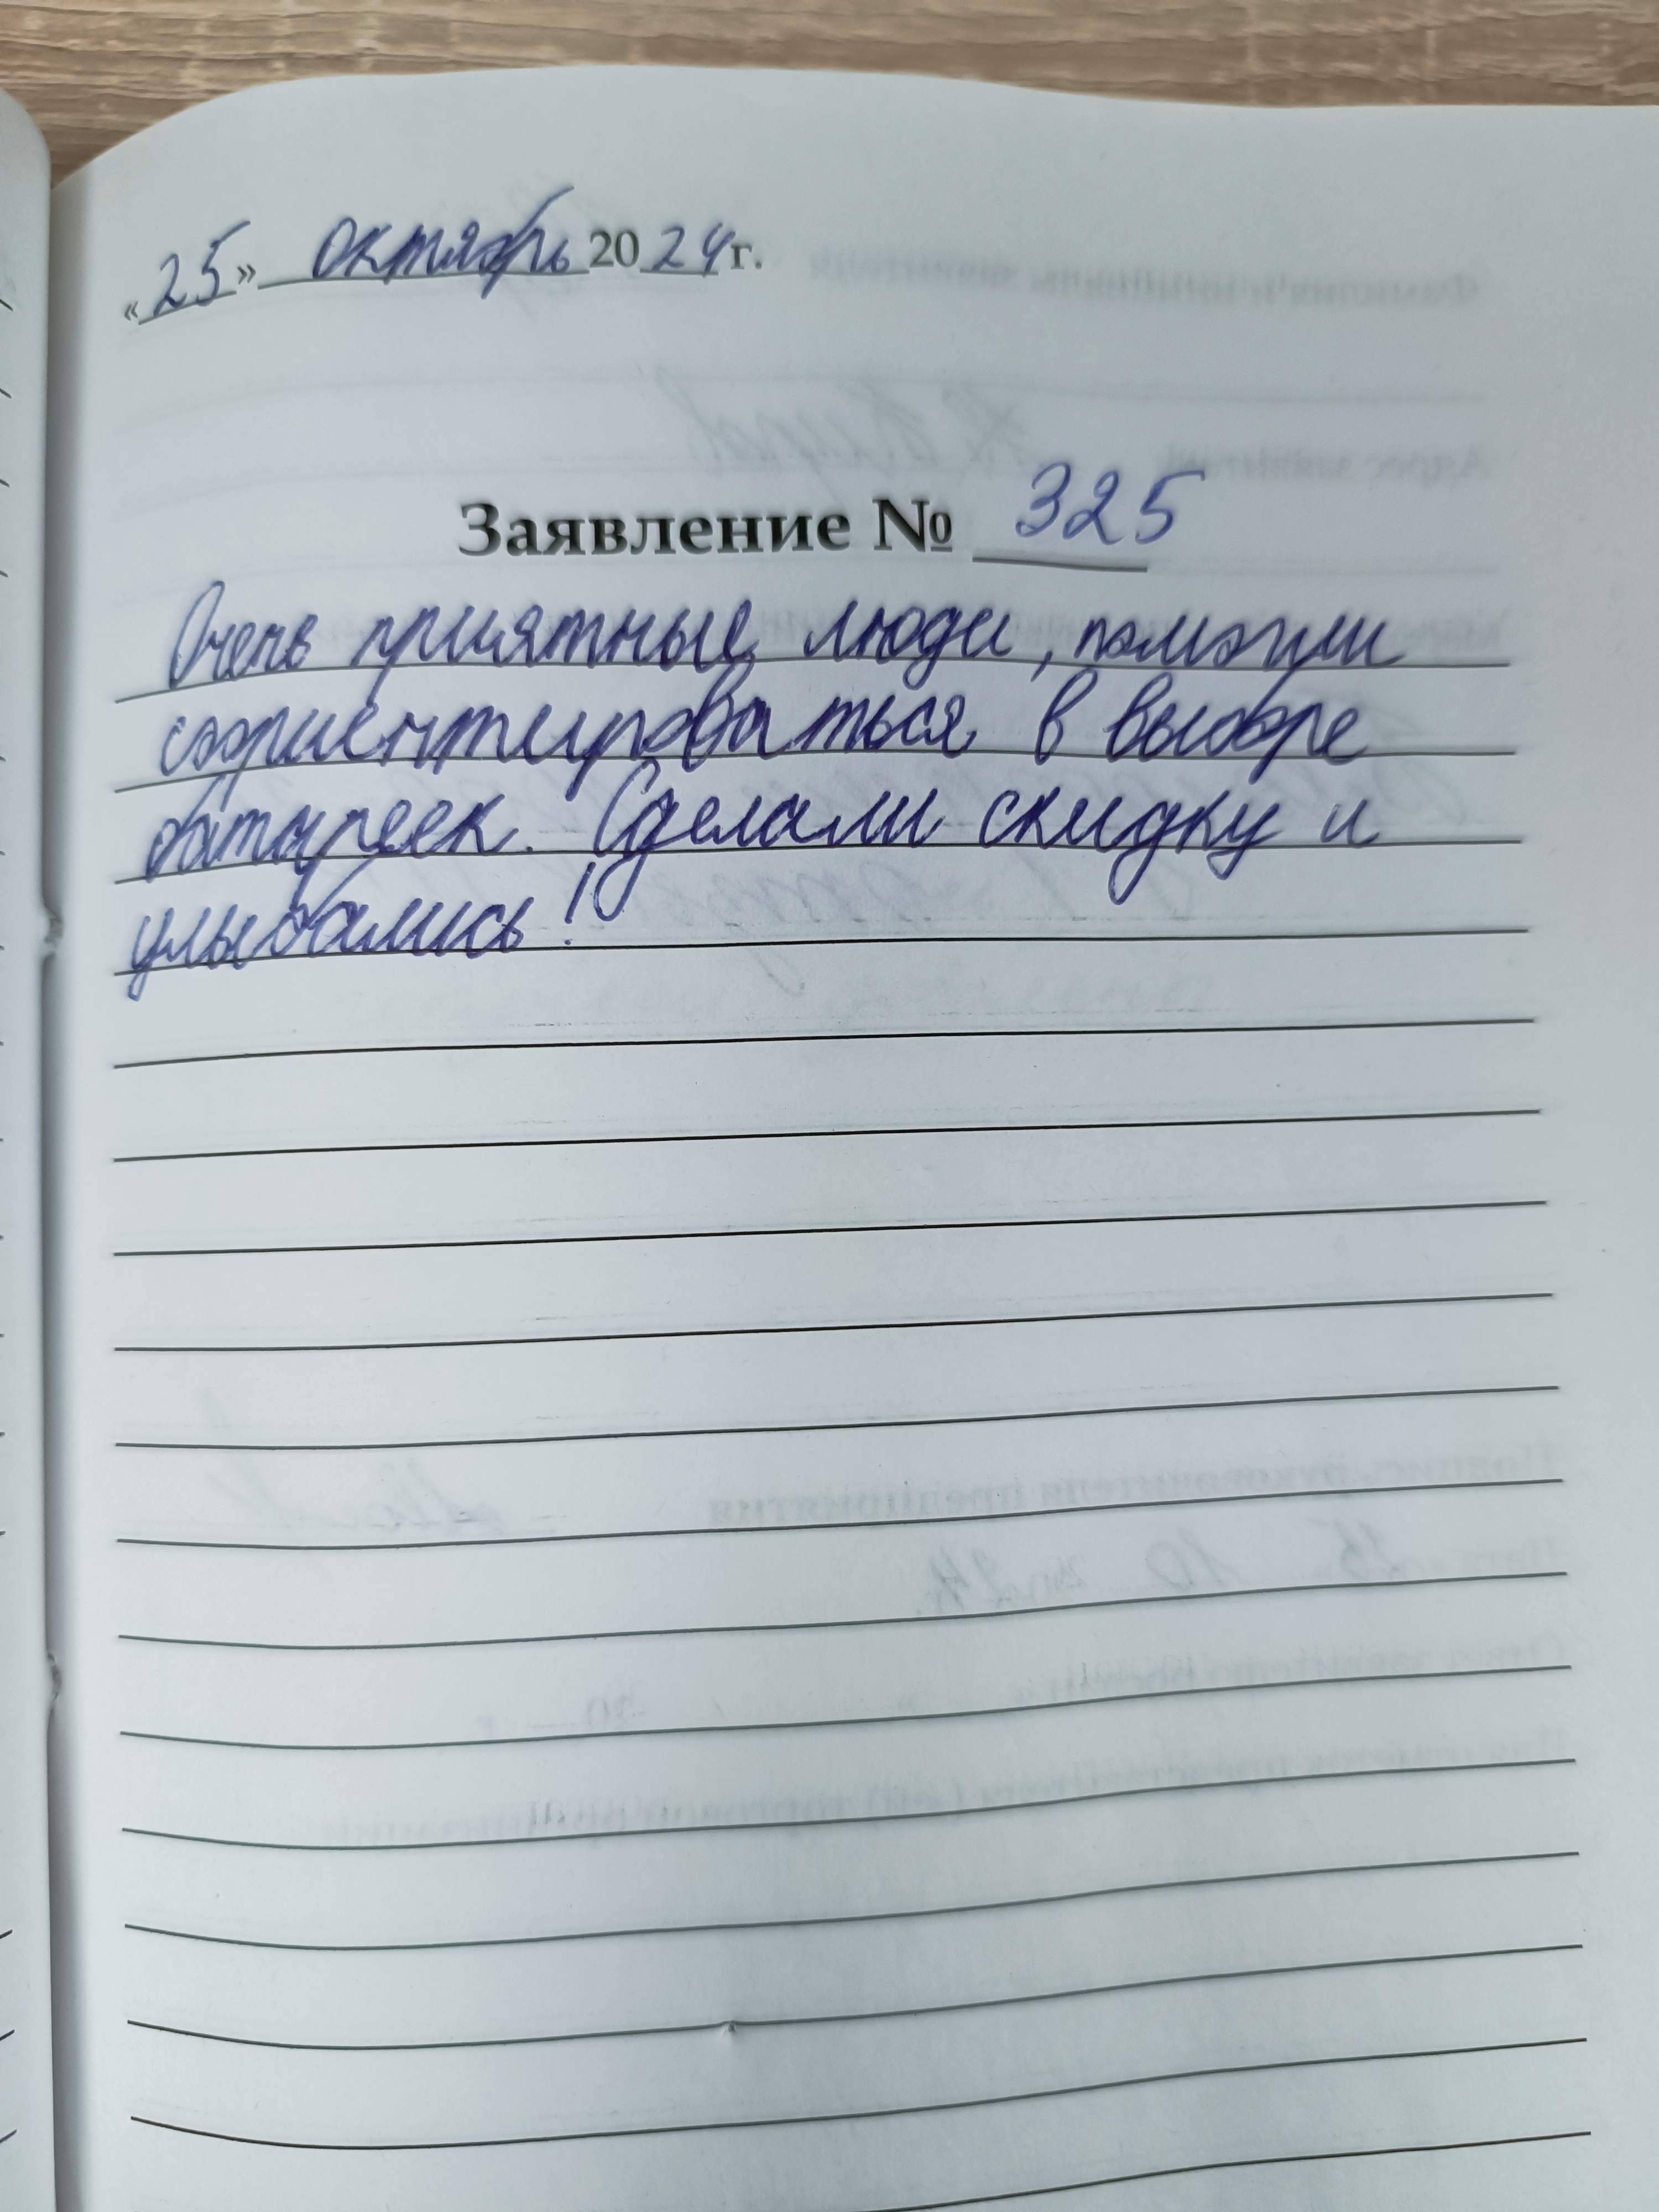 «25» октябрь 2024 г.
Заявление № 325
Очень приятные люди, помогли
сориентироваться в выборе
батареек. Сделали скидку и
улыбались!